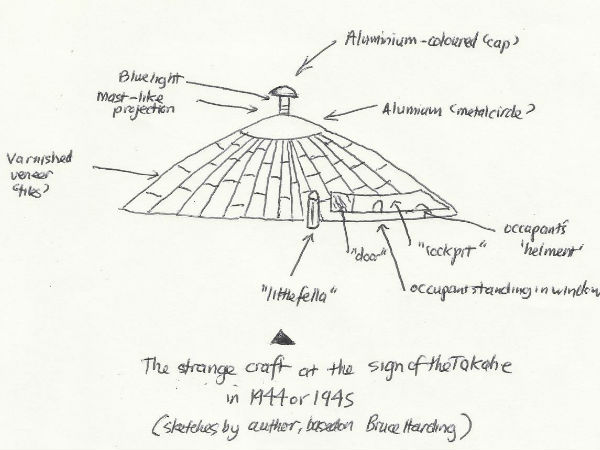 Aluminium-coloured (cap)
Blue light
Mast-like
projection
Alumium (metal circle)
Varnished
veneer
(tiles)
occupants'
'helment'
"door"
"cockpit"
"little fella"
occupant standing in window
The strange craft at the sign of the Takahe
in 1944 or 1945
(sketches by author, based on Bruce Harding)